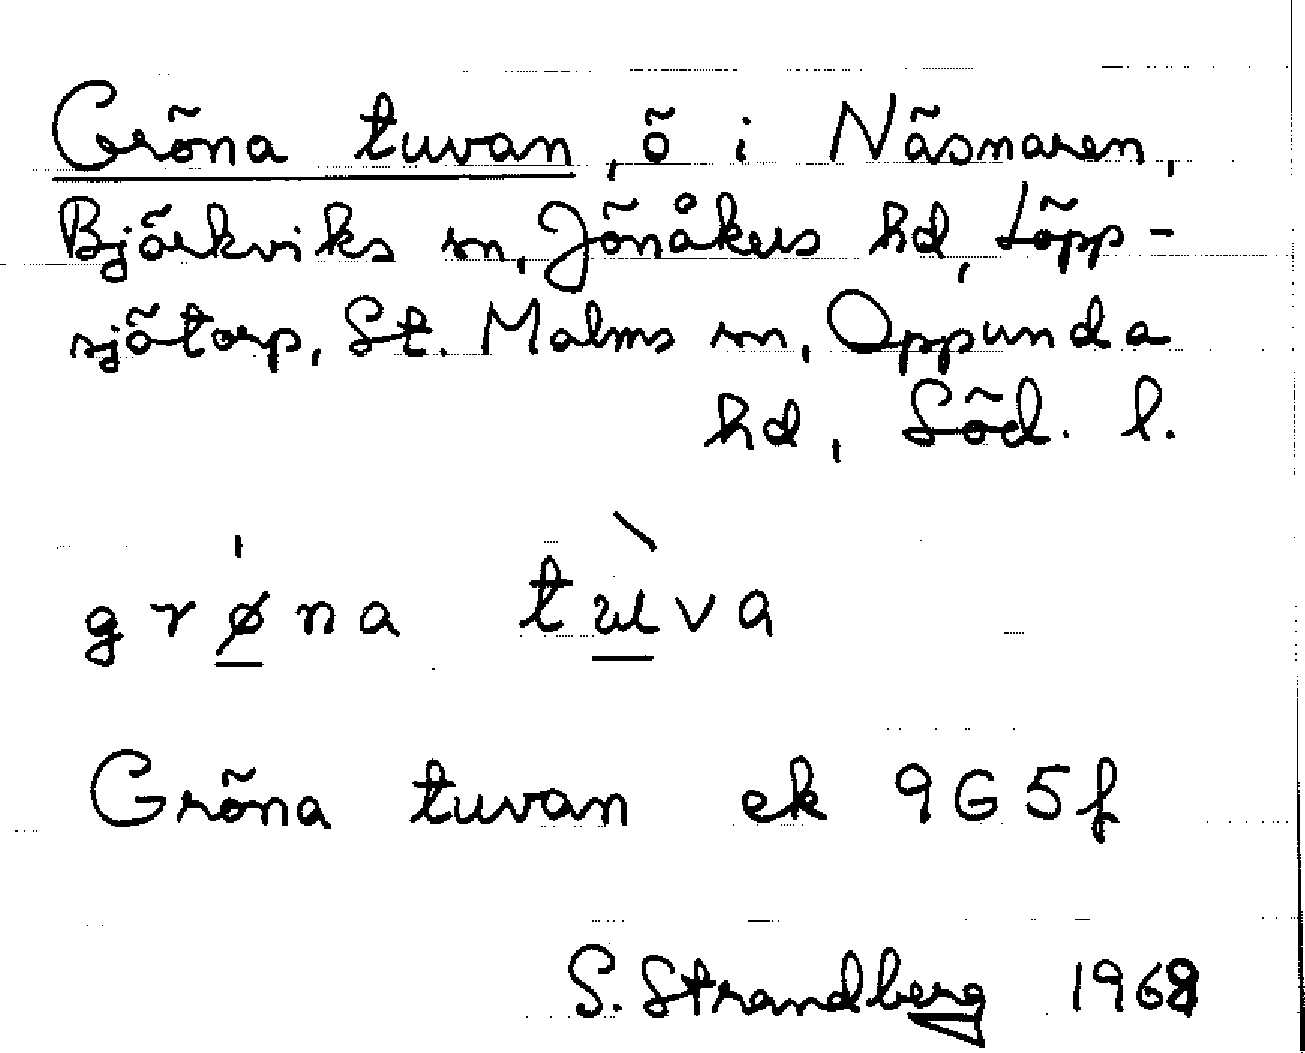 Gröna tuvan, ö i Näsnaren,
Björkviks sn, Jönåkers hd, Löpp-
sjötorp, St. Malms sn, Oppunda
hd, Söd. l.
grǿ̱na tù̱va
Gröna tuvan ek 9G5f
S. Strandberg 1968